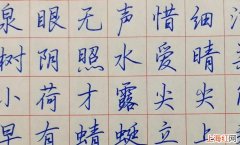 泉眼无声惜细
树阴照水爱晴
小荷才露尖尖
早有蜻蜓立上